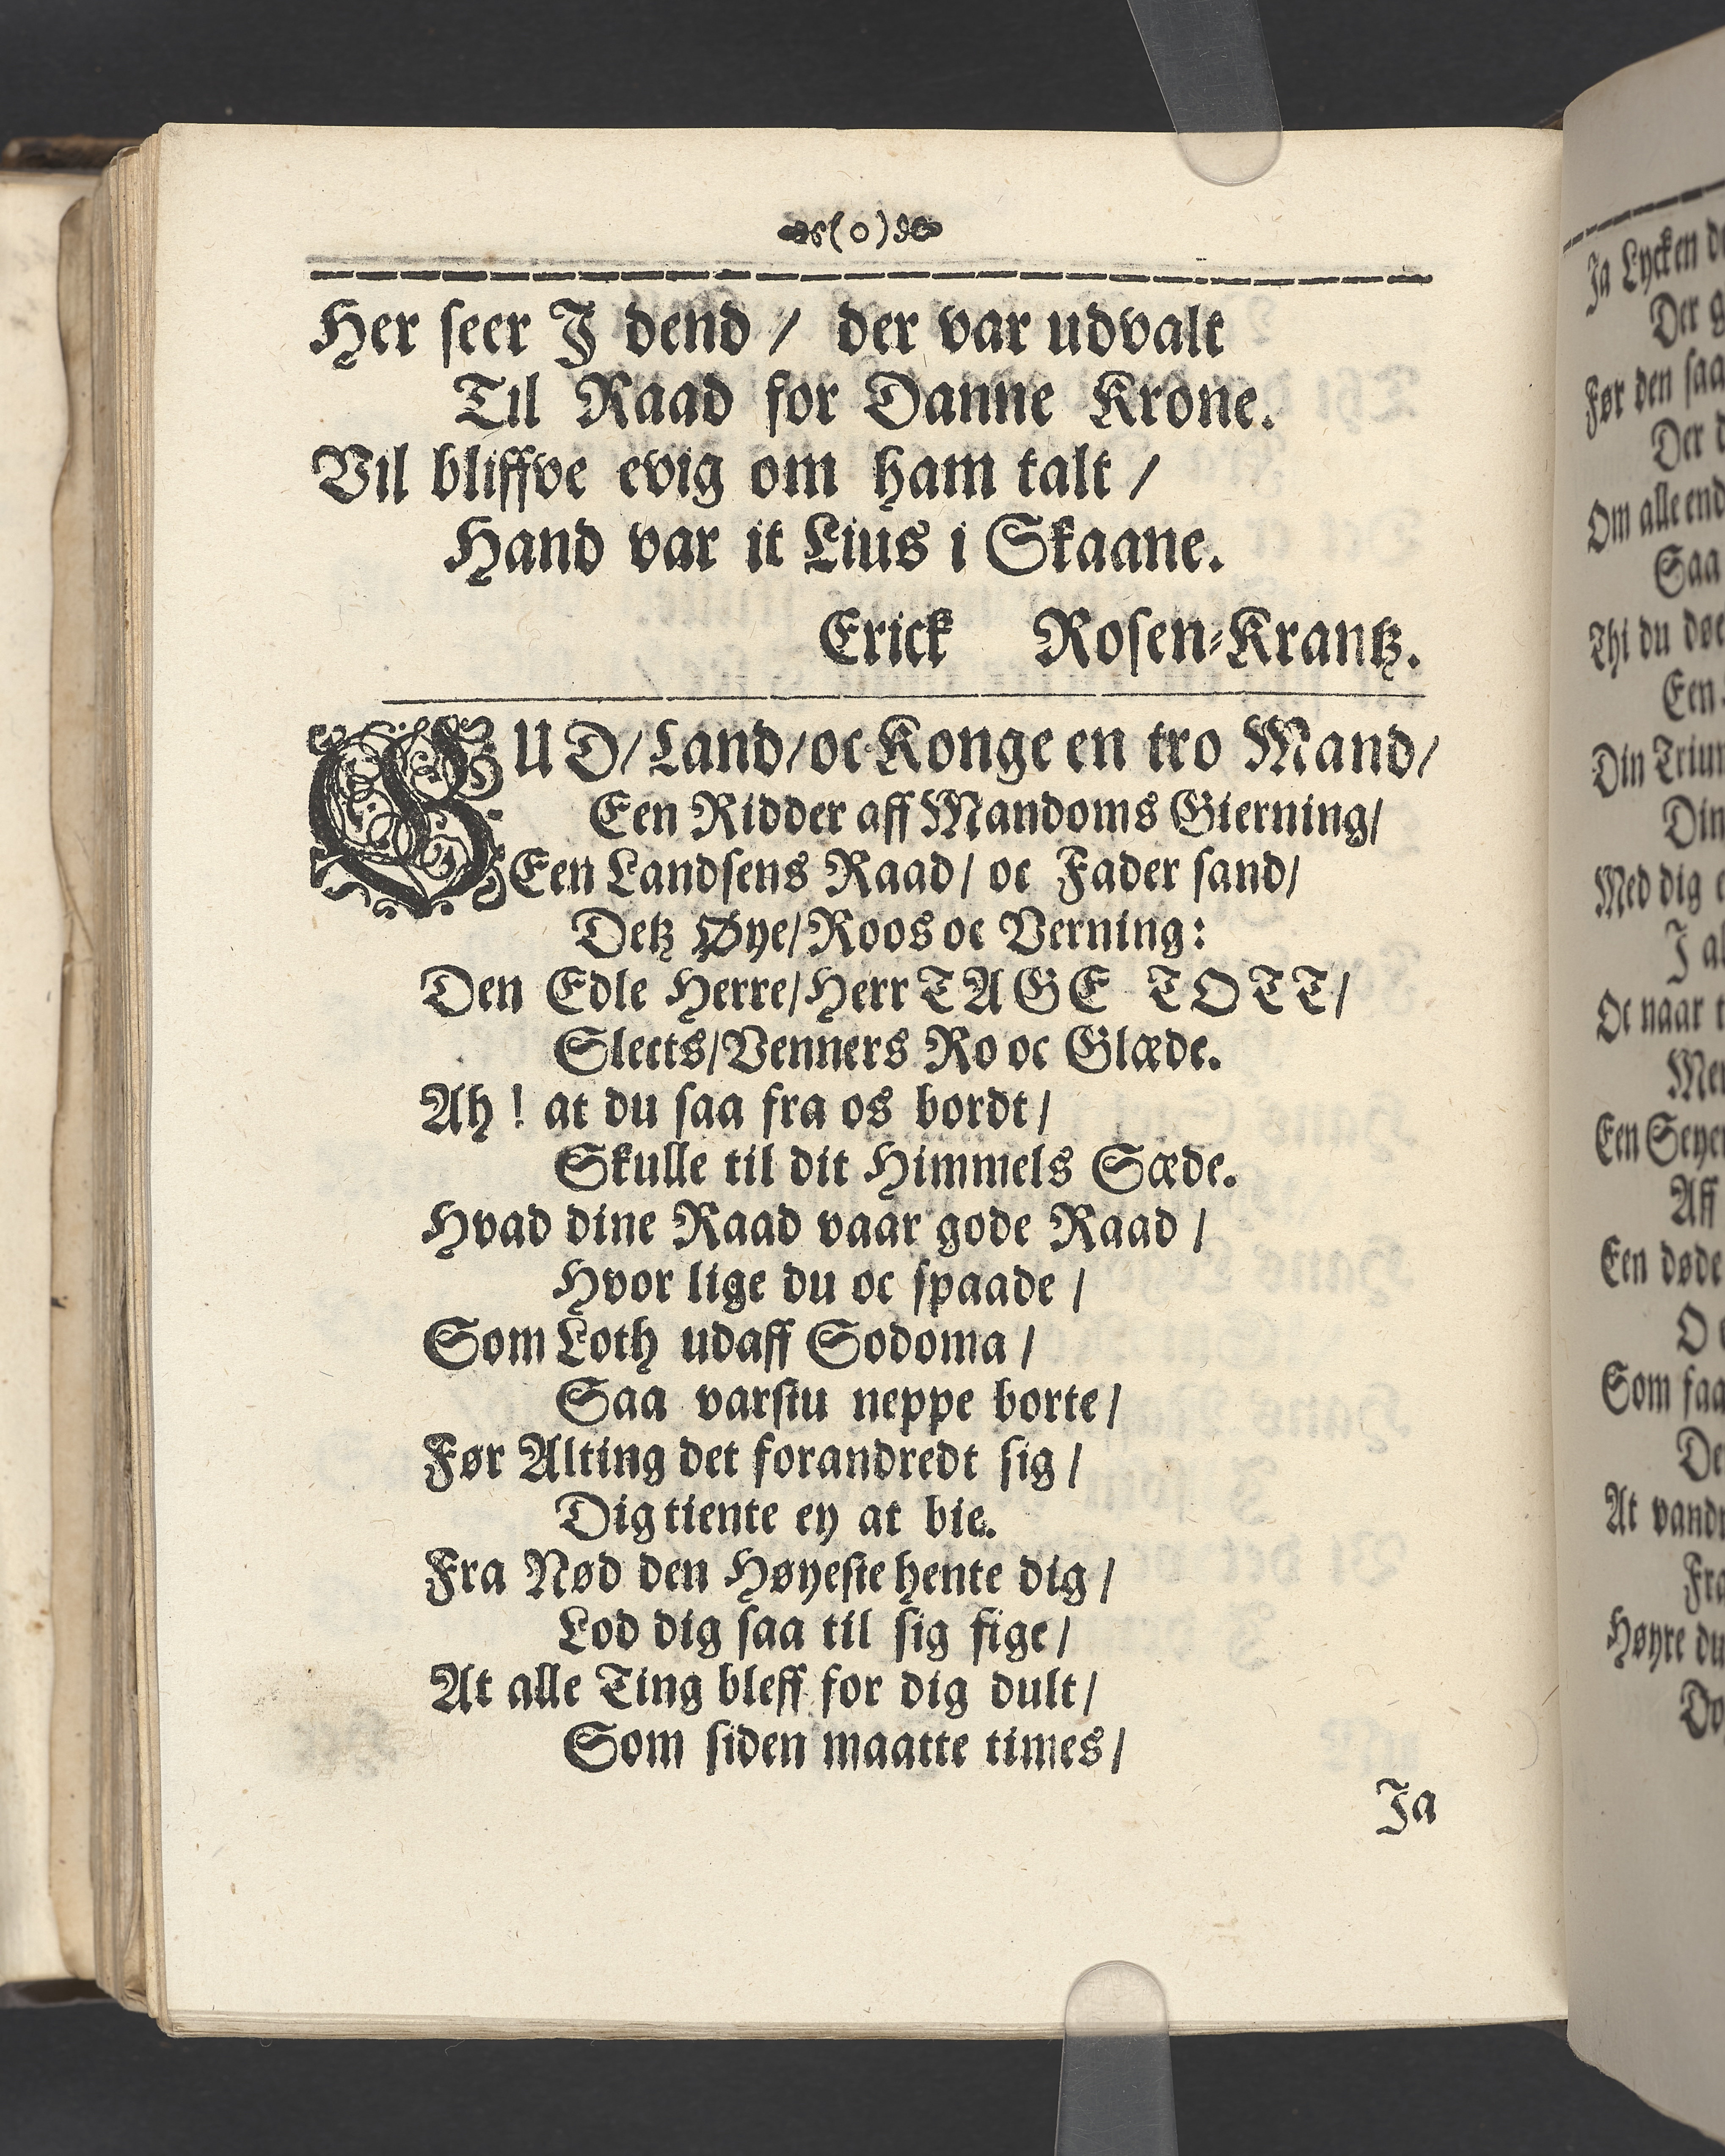 (o)
Her seer J dend / der var udvalt
Til Raad for Danne Krone.
Vil bliffve evig om ham talt /
Hand var it Lius i Skaane.
Erick Rosen-Krantz.
GUD/ Land/ oc Konge en tro Mand/
Een Ridder aff Mandoms Gierning/
Een Landsens Raad/ oc Fader sand/
Detz Øye/ Roos oc Verning:
Den Edle Herre/ Herr TAGE TOTT/
Slects/ Venners Ro oc Glæde.
Ah ! at du saa fra os bordt/
Skulle til dit Himmels Sæde.
Hvad dine Raad vaar gode Raad /
Hvor lige du oc spaade /
Som Loth udaff Sodoma /
Saa varstu neppe borte/
Før Alting det forandredt sig /
Dig tiente ey at bie.
Fra Nød den Høyeste hente dig /
Lod dig saa til sig fige/
At alle Ting bleff for dig dult/
Som siden maatte times/
Ja
Ja Lycken
Før den
Om alle
Thi du
Een
Din
Din
Med dig
J
Oc naar
Een
Aff
Een døde
O
Som
At
Høyre du